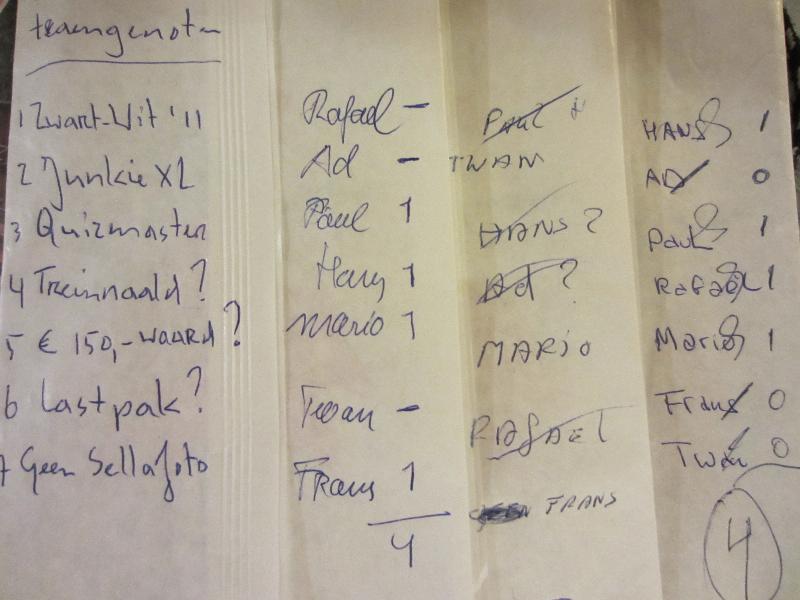 teamgenoten
1 Zwart-Wit '11
2 Junkie XL
3 Quizmaster
4 Treinnaald?
5 € 150,- WAARD?
6 Lastpak?
7 Geen Sellafoto
Rafael -
Ad -
Paul 1
Hans 1
Mario 1
Twan -
Frans 1
4
Paul
TWAN
HANS ?
Ad ?
MARIO
RAFAEL
FRANS
HANS 1
AD 0
Paul 1
Rafael 1
Mario 1
Frans 0
Twan 0
4